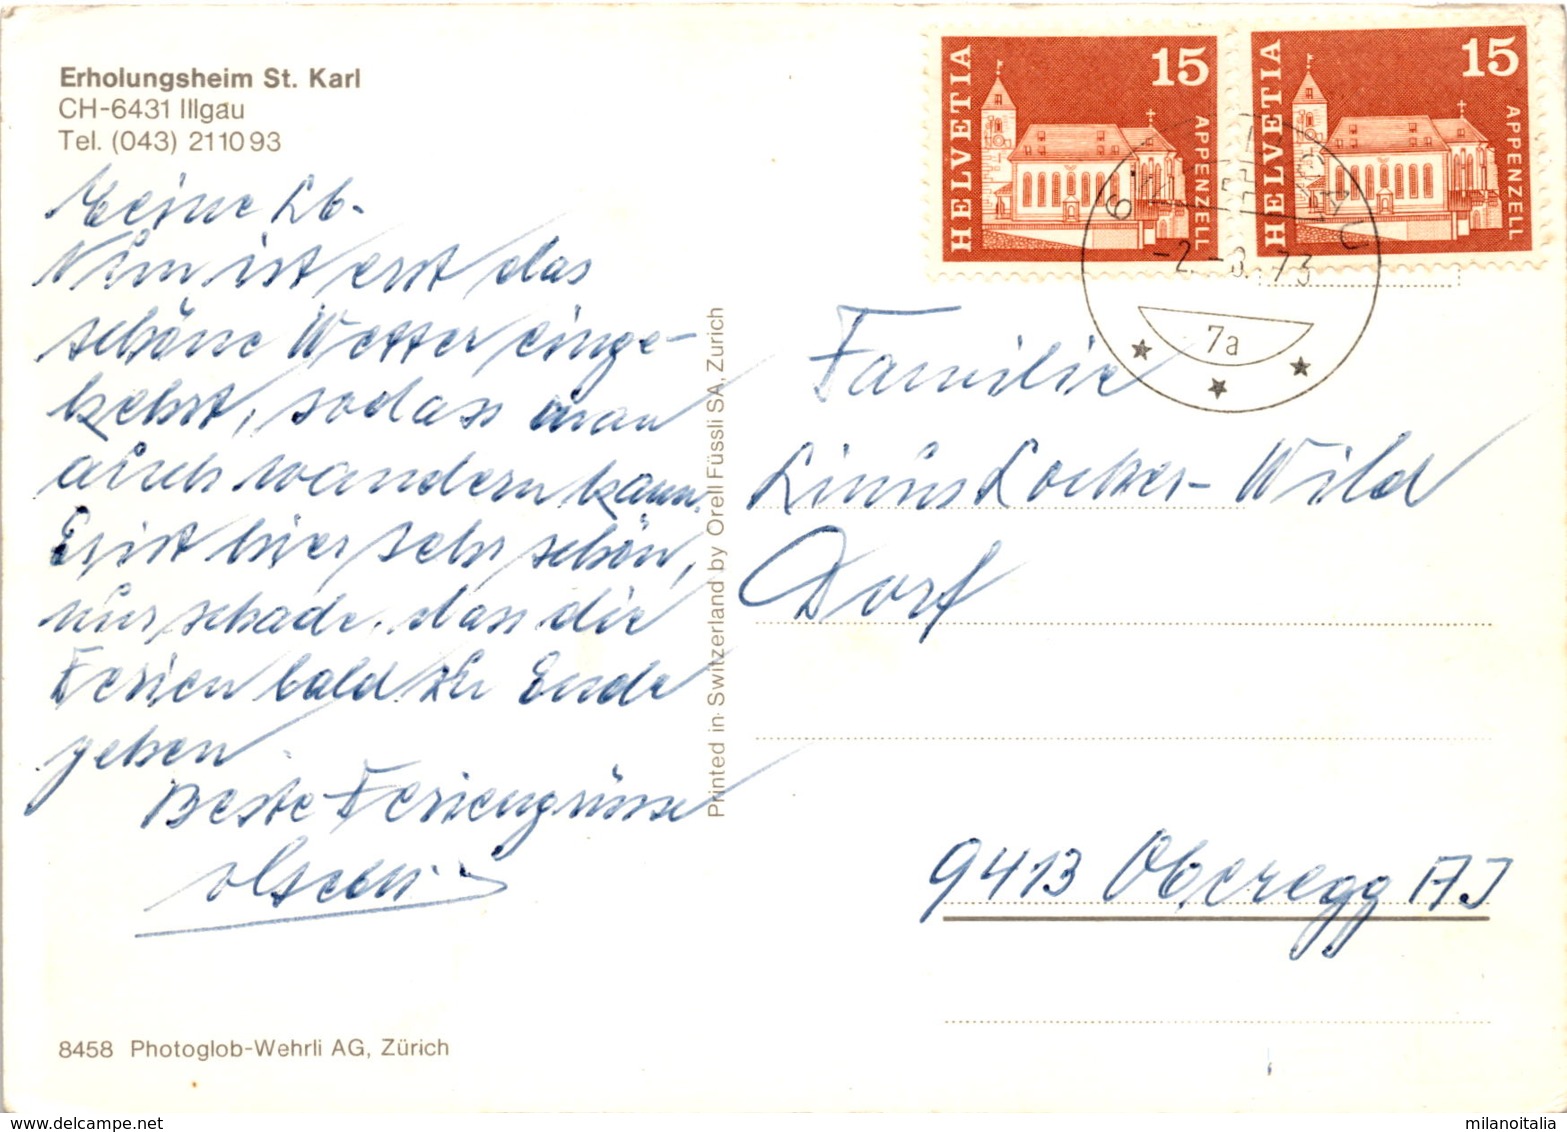 Erholungsheim St. Karl
CH-6431 Illgau
Tel. (043) 21 10 93
Meine Lb.
Nun ist erst das
schöne Wetter einge-
kehrt, sodass man
auch wandern kann.
Es ist hier sehr schön,
nur schade, dass die
Ferien bald zu Ende
gehen
Beste Feriengrüsse
8458 Photoglob-Wehrli AG, Zürich
Printed in Switzerland by Orell Füssli SA, Zurich
HELVETIA 15 APPENZELL
HELVETIA 15 APPENZELL
-2.-8.73
7a
Familie
Linus Locher-Wild
Dorf
9413 Oberegg AI
milanoitalia